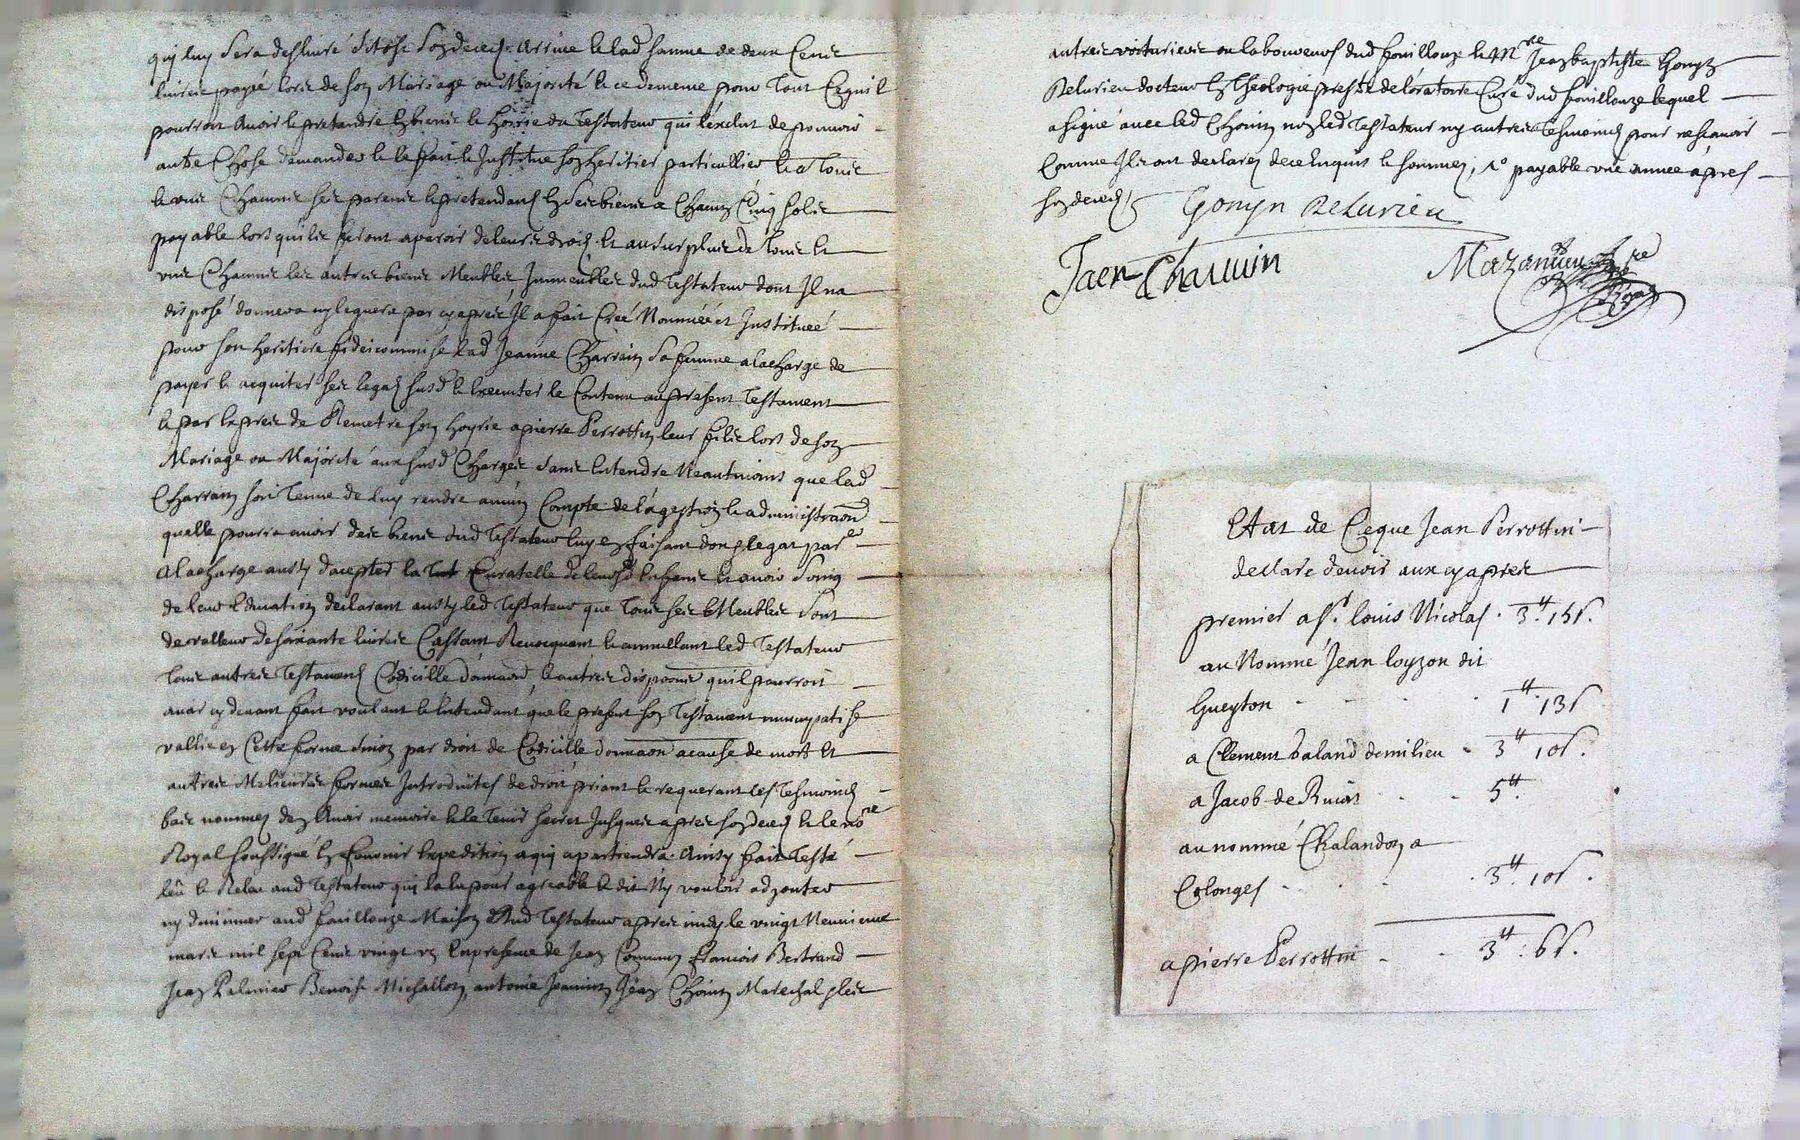 quy luy sera deslivré sitost son deced. Arrivé & lad somme de deux Cent
livres payé lors de son Mariage ou Majorité & ce dememe pour Tout Cequil
pourroit Avoir & pretendre Es biens & hoirie du Testateur qui l'exclut de pouvoir
autre Chose demander & le fait & Institue son heritier particullier & a Tous
& uns Chacuns ses parens & pretendans En ses biens a Chacun Cinq sols
payable lors quils feront aparoir de leurs droits & au surplus de Tous &
uns Chacuns les autres biens Meubles Immeubles dud Testateur dont Il na
disposé donnera ny leguera par cy apres Il a fait Creé Nommée et Instituée
pour son heritiere fideicommise lad Jeanne Charrain sa femme a la charge de
payer & acquiter ses legats susd & Executer le Contenu au present Testament
& par Expres de Remetre son hoyrie a pierre Perrottin leur fils lors de son
Mariage ou Majorité aux susd Charges sans Entendre Neautmoins que lad
Charrain soit Tenue de luy rendre aucun Compte de la gestion & administraon
quelle pourra avoir des biens dud Testateur luy en faisant don & legat par
A la charge aussy d'acepter la Tut Curatelle de leursd Enfans & avoir soing
de leur Education declarant aussy led Testateur que Tous ses Meubles sont
de valleur de soixante livres Cassant Revocquant & annullant led Testateur
Tous autres Testament Codicille donnaon & autres dispoons quil pourroit
avoir cy devant fait voulant & Entendant que le present son Testament nuncupatif
vallie en Cette forme sinon par droit de Codicille donnaon a cause de mort Et
autres Melieures formes Introduites de droit priant & requerant les Tesmoins
bas nommez den Avoir memoire & le Tenir secret Jusques apres son deced & le nore
Royal soussigné En fournir Expedition a quy apartiendra. Ainsy fait Testé
leu & Releu aud Testateur qui la lu pour agreable & dit Ny vouloir adjouter
ny diminuer aud fouillouze Maison dud Testateur apres midy le vingt Neuvieme
mars mil sept Cens vingt un En presence de Jean Commun francois Bertrand
Jean Palmier Benoist Michallon, antoine Jeannin, Jean Choin Marechal & les
autres voituriers ou laboureurs dud fouillouze & Mre Jean baptiste Gonyn
Relurieu docteur En Theologie prestre de l'oratoire Curé dud fouillouze lequel
a signé avec led Choin non led Testateur ny autres Tesmoins pour ne scavoir
Comme Ils ont declaré de ce Enquis & sommez, 1° payable une année apres
son deced,
Gonyn ReLurieu
Jaen Chauuin
Mazanieu nre Royal
Etat de Ceque Jean Perrottin
declare devoir aux cy apres
premier a sr. louis Nicolas. 3tt. 15s.
au Nommé Jean loyzon dit
Gueyton - - - 1tt. 13s
a Clement baland demilieu - 3tt 10s.
a Jacob de Ruiat - - 5tt.
au nommé Chalandon a
Colonges - - - 3tt. 10s.
a pierre Perrottin - - 3tt: 6s.